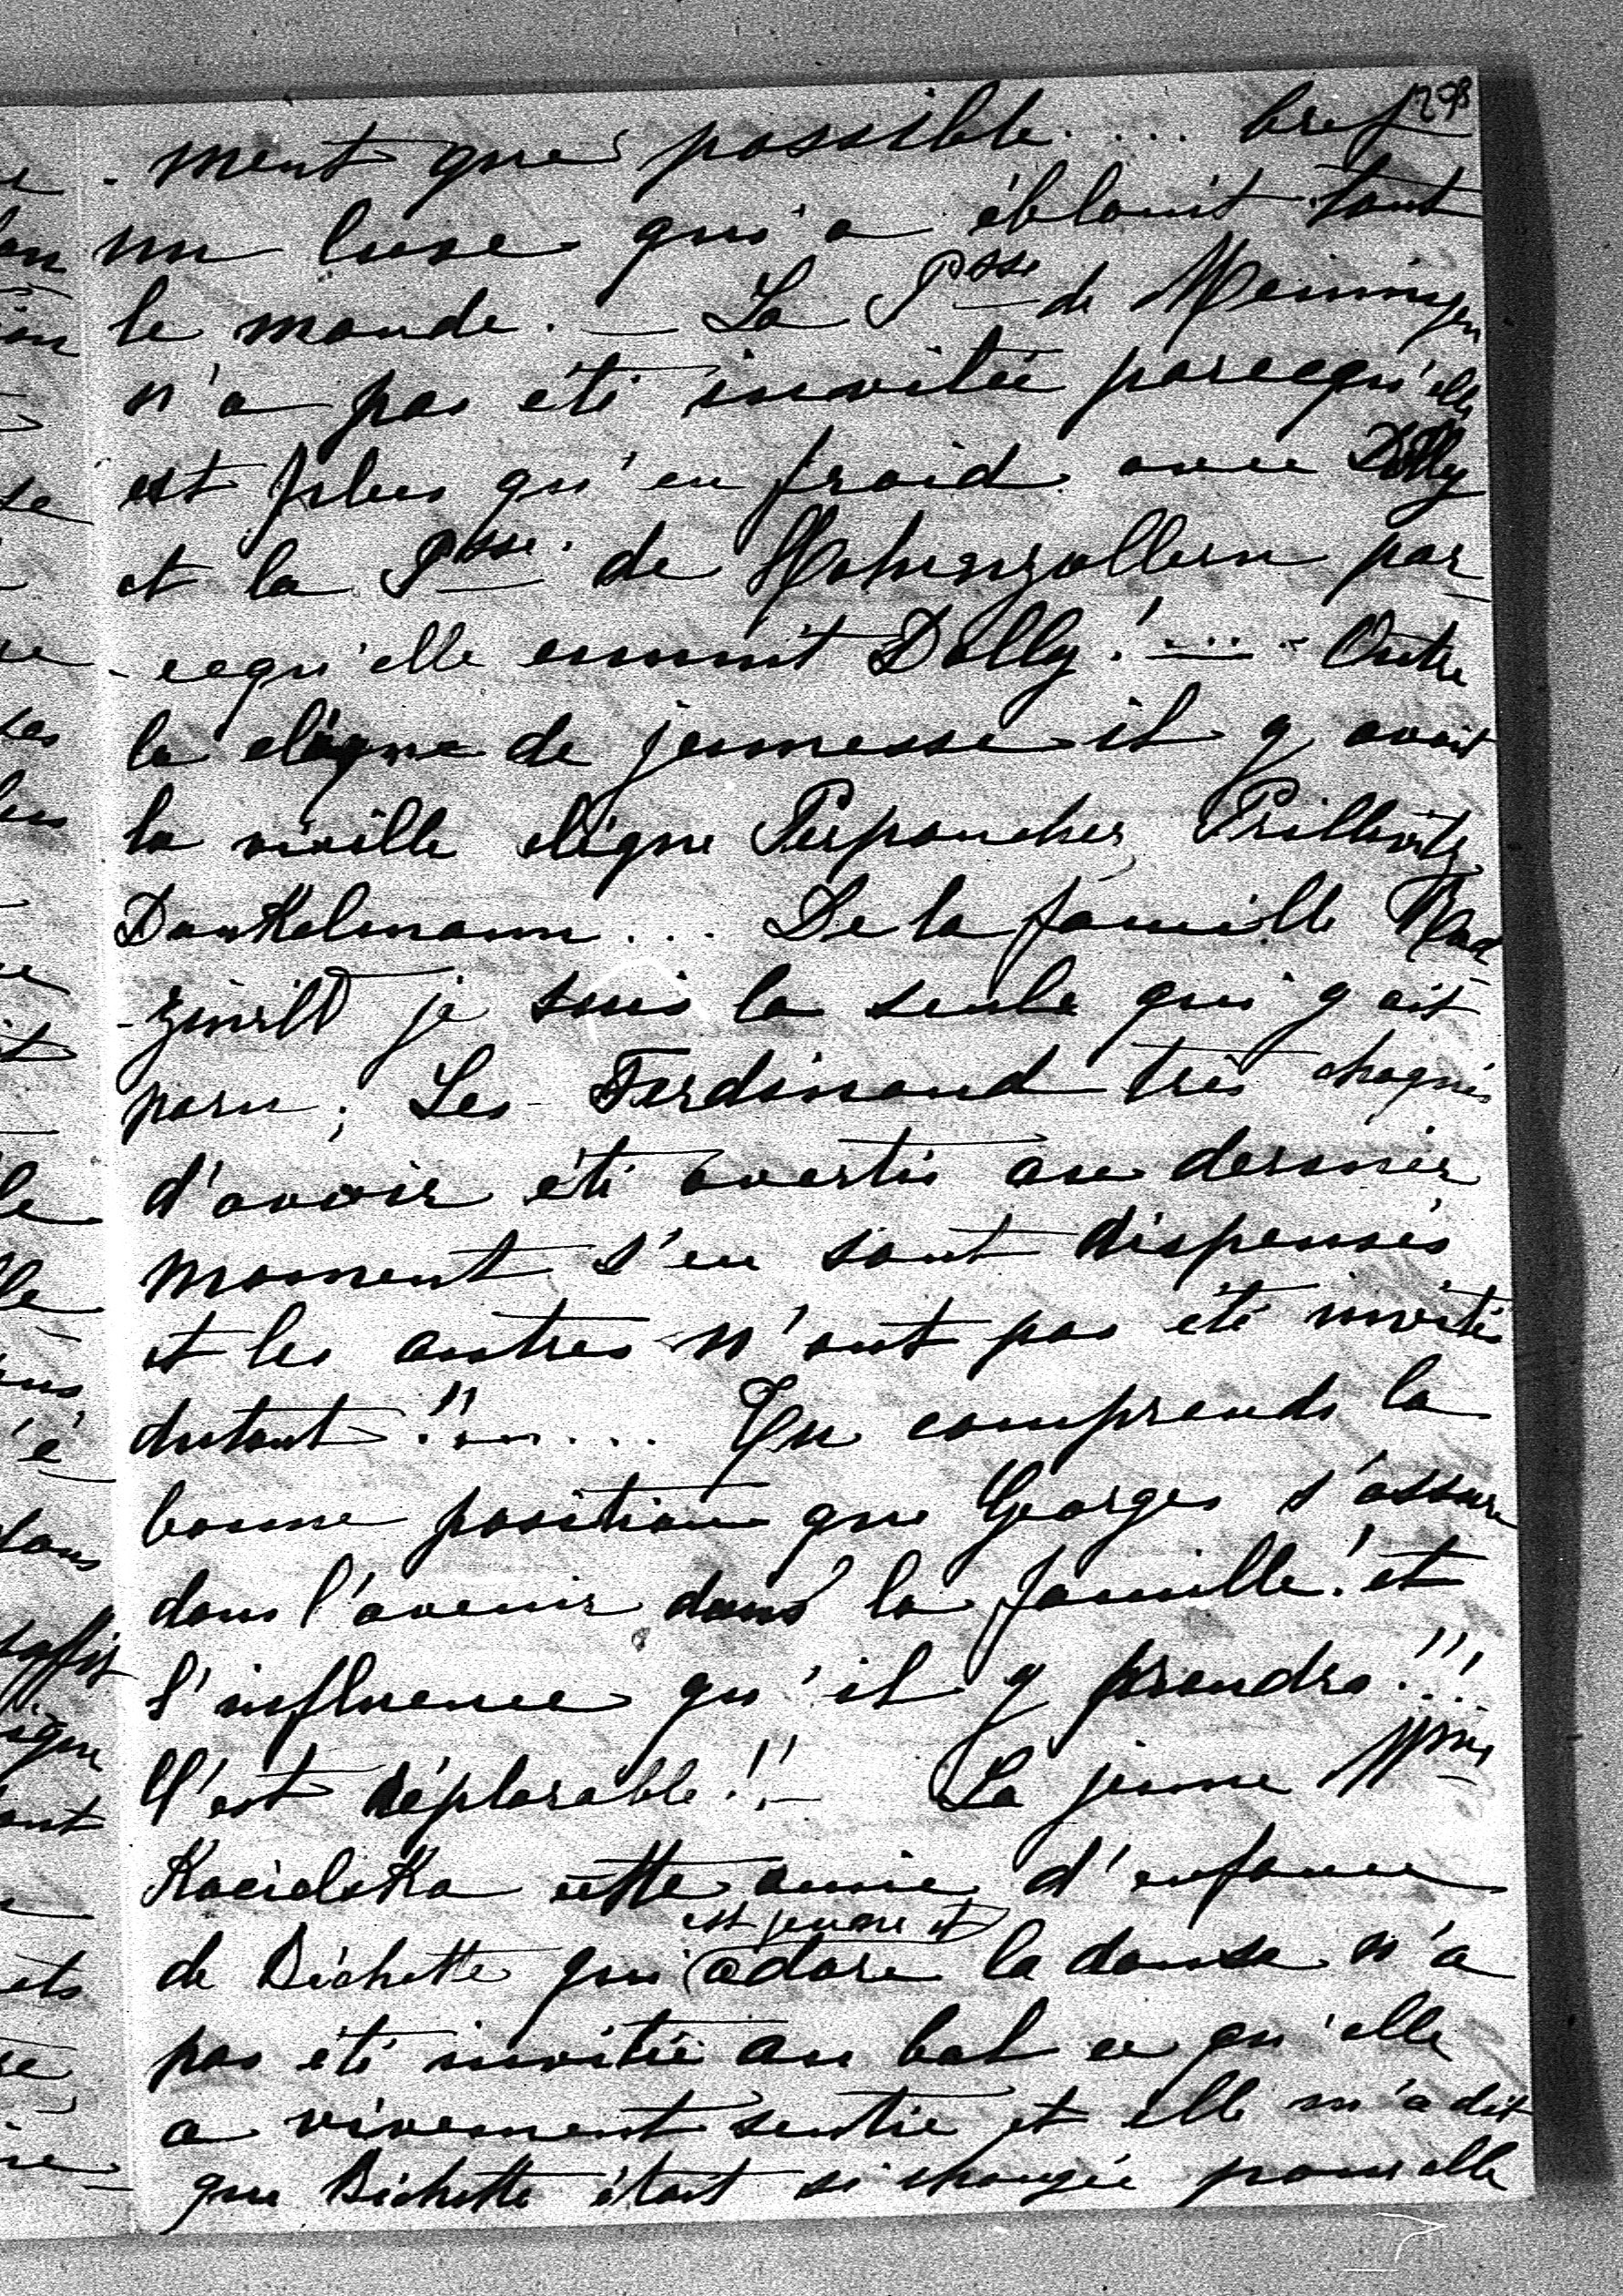 298
- ment que possible.... bref
un luxe qui a éblouit tout
le monde. — La Psse de Meiningen
n'a pas été invitée parcequ'elle
est plus qu'en froid avec Dolly
et la Psse. de Hohenzollern par-
- cequ'elle ennuit Dolly! .... Outre
la clique de jeunesse il y avait
la vieille clique Perponcher, Prillwitz
Dankelmann... De la famille Rad-
- ziwill je suis la seule qui y ait
paru; Les Ferdinand très chagrins
d'avoir été avertis au dernier
moment s'en sont dispensés
et les autres n'ont pas été invités
dutout!!..... Tu comprends la
bonne position que Georges s'assure
dans l'avenir dans la famille! et
l'influence qu'il y prendra!!!
C'est déplorable!! — La jeune Mme
Koscielska cette amie d'enfance
de Bichette qui est jeune et adore la danse n'a
pas été invitée au bal ce qu'elle
a vivement sentie et elle m'a dit
que Bichette était si changée pour elle